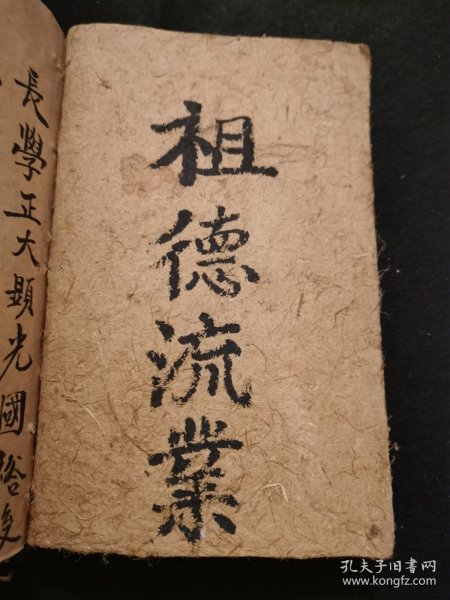 祖德流業
長學正大顯光國
孔夫子旧书网
www.kongfz.com